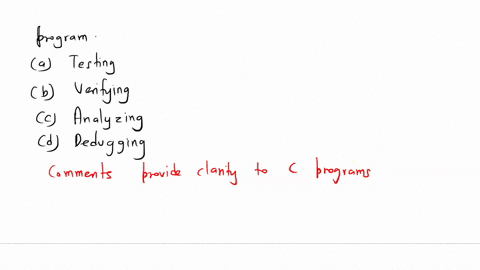 program.
(a) Testing
(b) Verifying
(c) Analyzing
(d) Dedugging
Comments provide clarity to C programs